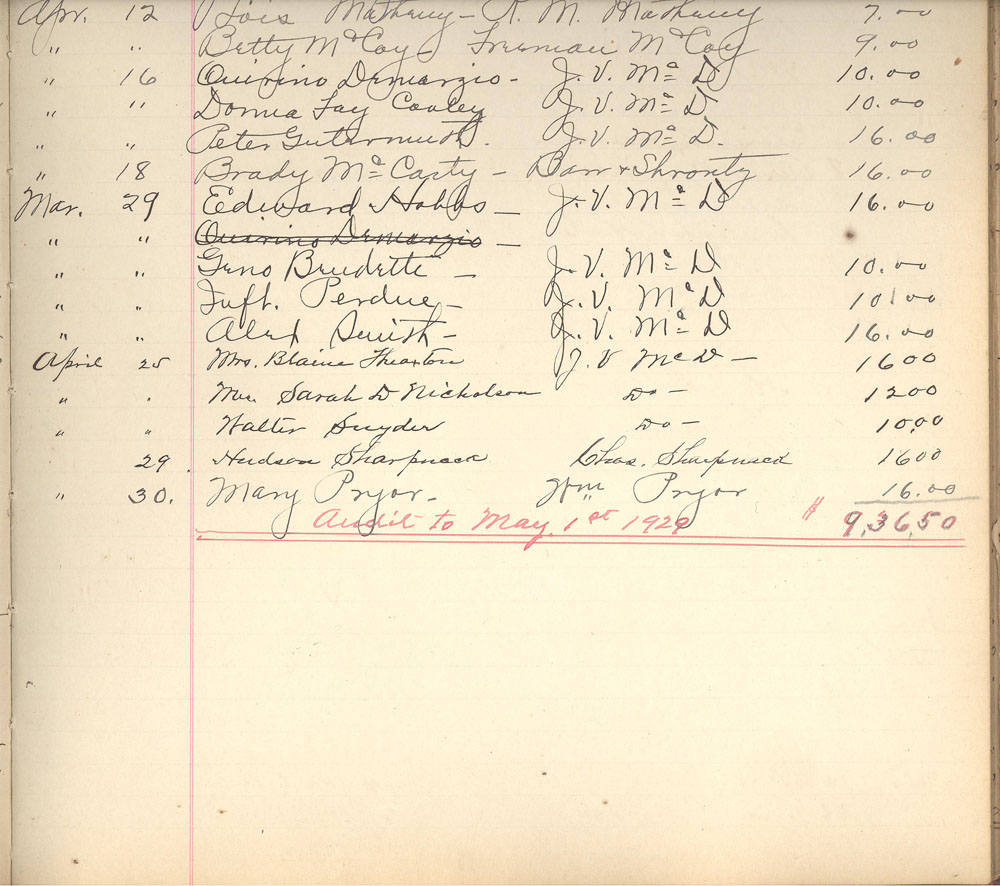 Apr. 12 Lois Matheny - R. M. Matheny 7.00
" " Betty McCoy - Freeman McCoy 9.00
" 16 Quirino Demarzio - J. V. Mc D 10.00
" " Donna Fay Cooley J. V. Mc D. 10.00
" " Peter Gutermuth. J. V. Mc D. 16.00
" 18 Brady Mc Carty - Barr & Shrontz 16.00
Mar. 29 Edward Hobbs - J. V. Mc D 16.00
" " Quirino Demarzio -
" " Geno Beudette - J. V. Mc D 10.00
" " Inft. Perdue - J. V. Mc D 10.00
" " Alex Smith - J. V. Mc D 16.00
April 25 Mrs. Blaine Thearton J. V McD - 16 00
" " Sarah D Nicholson Do - 12 00
" " Walter Snyder Do - 10.00
29. Hudson Sharpneck Chas. Sharpneck 16 00
" 30. Mary Pryor - Wm Pryor 16.00
Audit to May. 1st 1929 $ 9,36,50